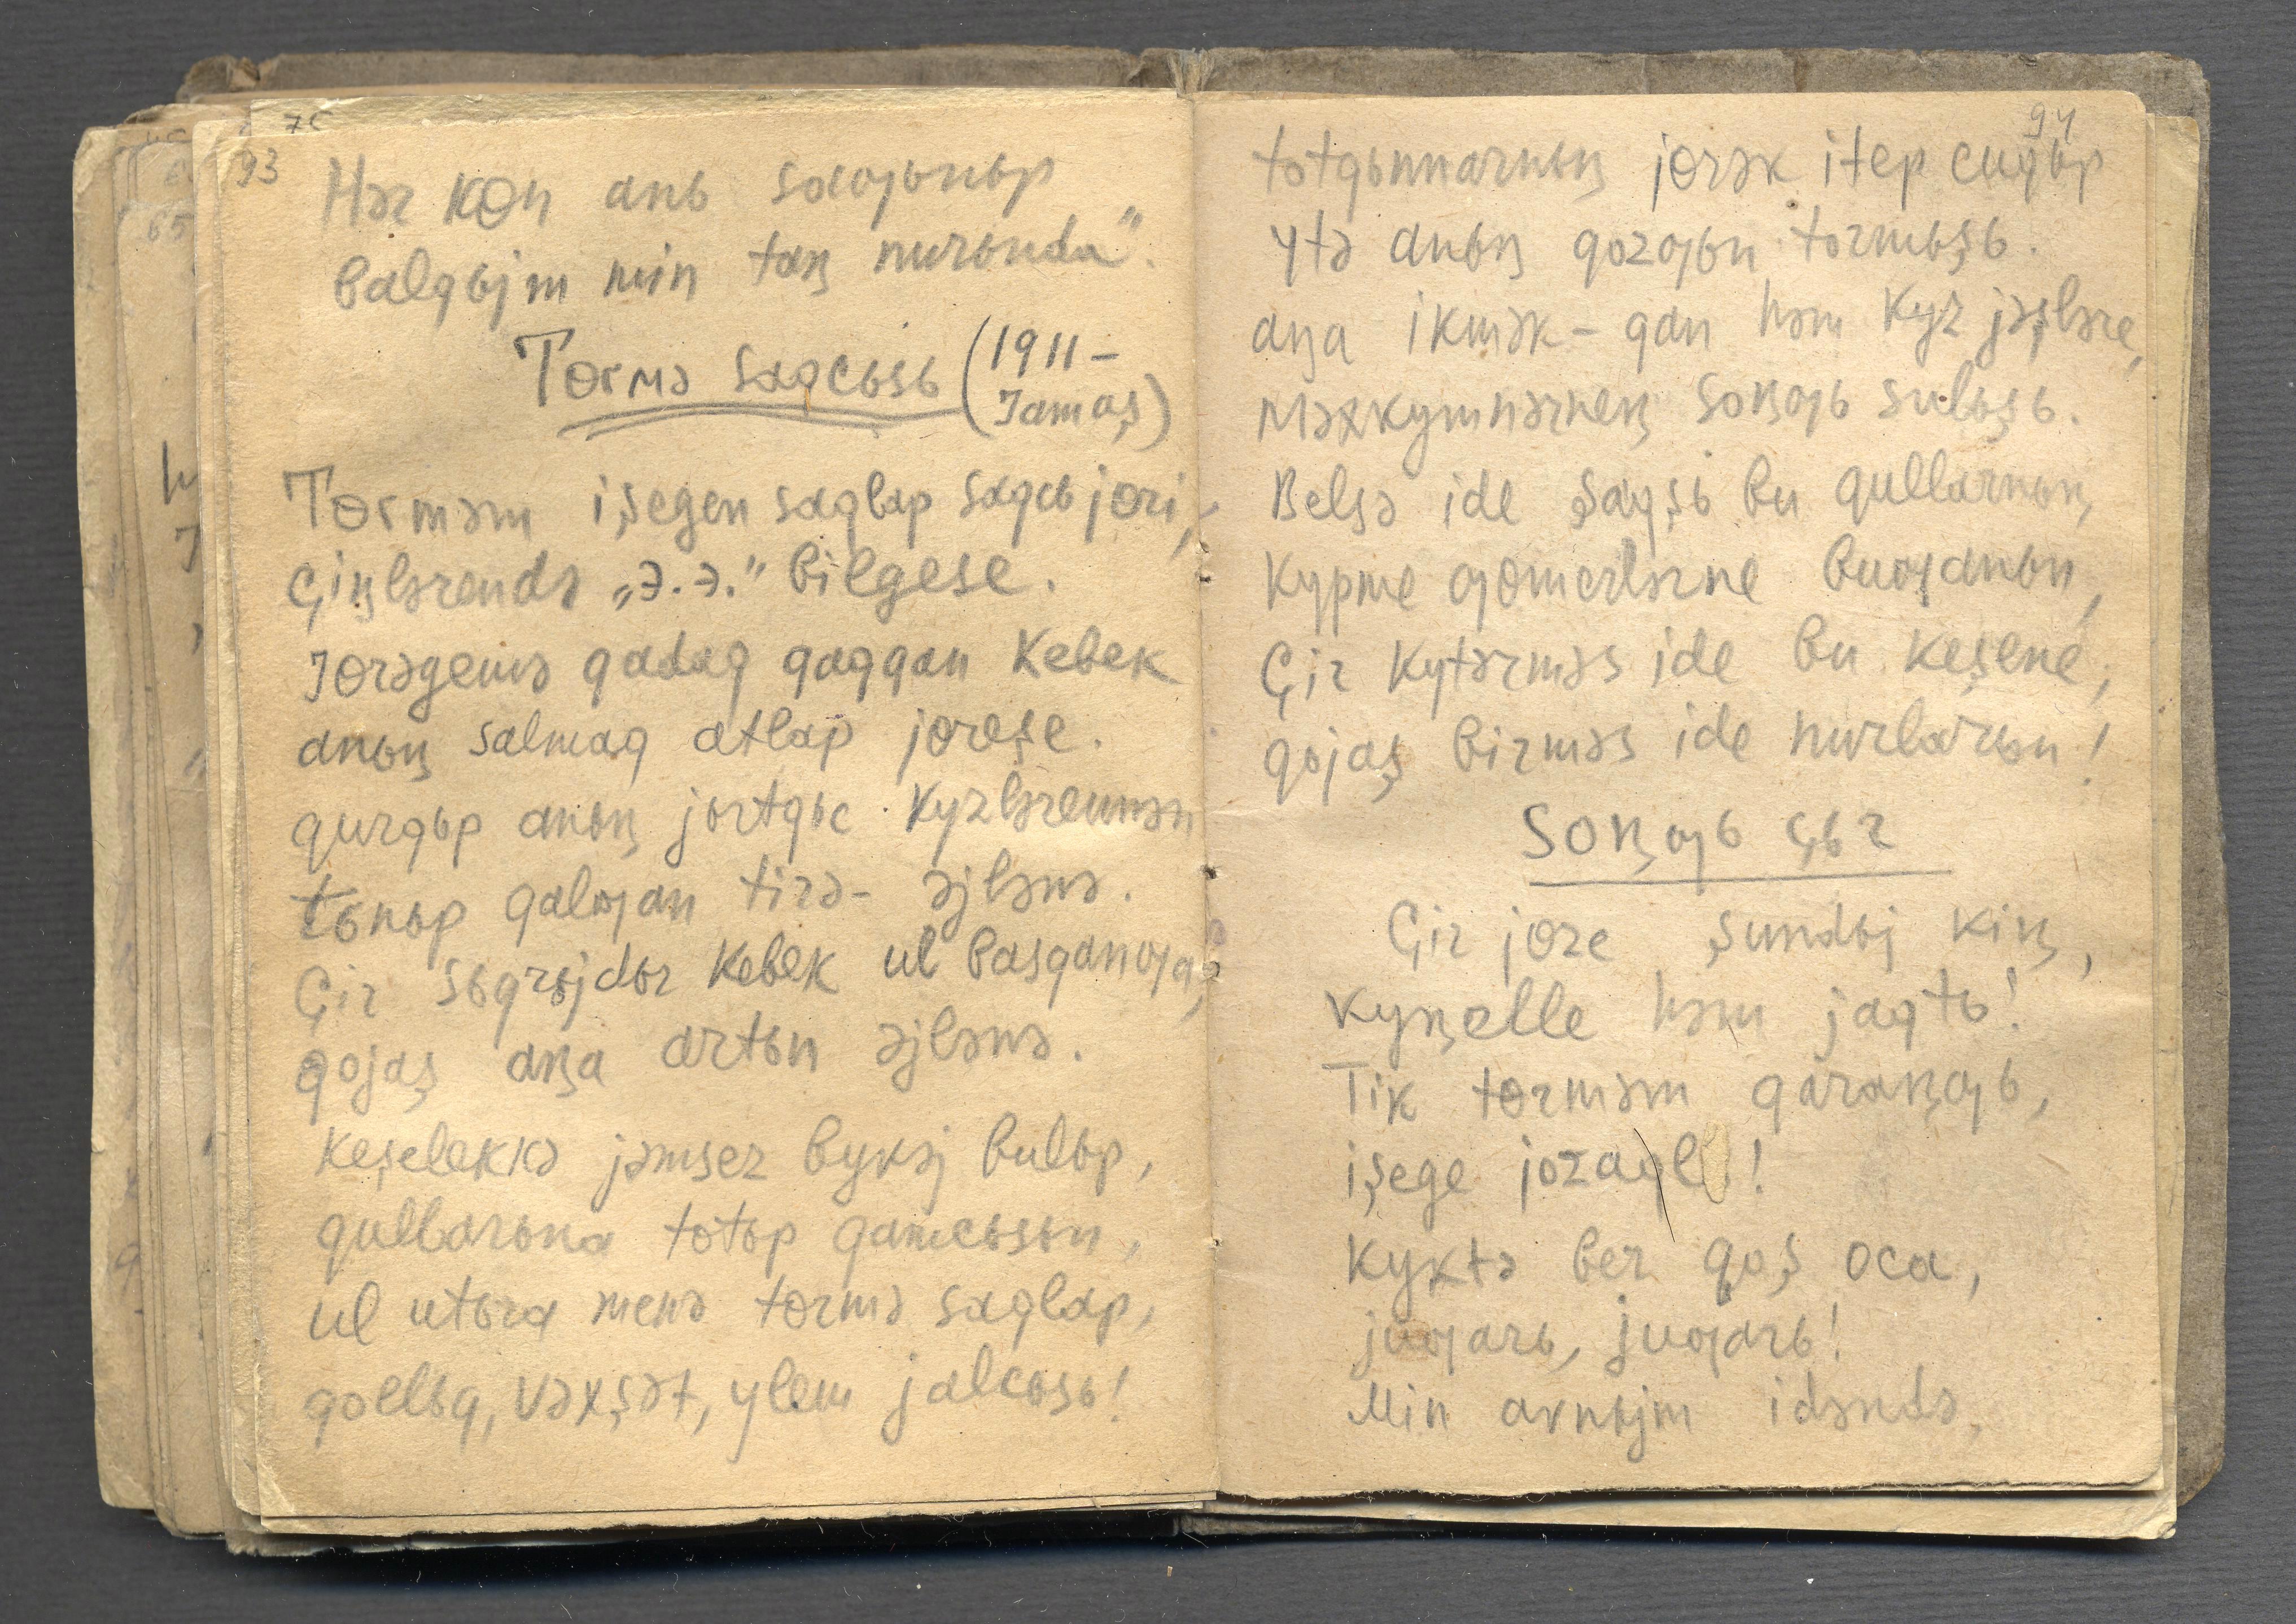 93
Hər kɵn anь saƣьnьp
balqьjm min taꞑ nurьnda".
Tɵrmə saqcьsь (1911-
Jamaş)
Tɵrməm işegen saqlap saqcь jɵri,
Çiꞑlərendə „Э.Э.” bilgese.
Jɵrəgemə qadaq qaqqan kebek
anьꞑ salmaq atlap jɵreşe.
qurqьp anьꞑ jьrtqьc kyzlərennən
tьnьp qalƣan tirə- əjlənə.
Çir sьqrьjdьr kebek ul basqanƣa,
qojaş aꞑa artьn əjlənə.
keşelekkə jəmsez bykəj bulьp,
qullarьna totьp qamcьsьn,
ul utьra menə tɵrmə saqlap,
qollьq, vəxşət, ylem jalcьsь!
94
totqьnnarnьꞑ jɵrək itep cuqьp
ytə anьꞑ qozƣьn tormьşь.
aꞑa ikmək - qan həm kyz jəşləre,
Məxkymnərneꞑ soꞑƣь sulьşь.
Belsə ide şaqşь bu qullarnьꞑ,
kypme ƣɵmerlərne buƣanьn,
Çir kytərməs ide bu keşene,
qojaş birməs ide nurlarьn!
Soꞑƣь çьr
Çir jɵze şundьj kiꞑ,
kyꞑelle həm jaqtь!
Tik tɵrməm qaraꞑƣь,
işege jozaqlь!
kyktə ber qoş oca,
juƣarь, juƣarь!
Min avnьjm idəndə,